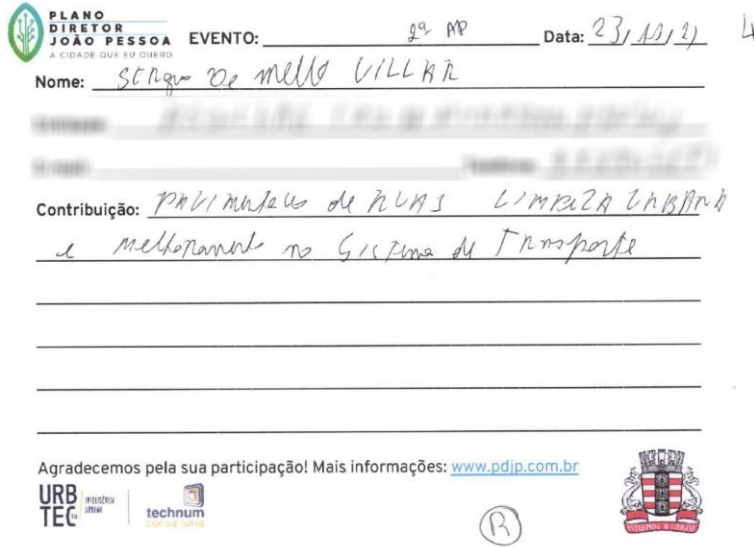 PLANO
DIRETOR
JOÃO PESSOA
A CIDADE QUE EU QUERO
EVENTO: 2ª AP Data: 23/11/21 4
Nome: Sergio De Mello VILLAR
Contribuição: PAVIMENTAÇÃO de RUAS LIMPEZA URBANA
e Melhoramento no Sistema de Transporte
Agradecemos pela sua participação! Mais informações: www.pdjp.com.br
URB
TEC
INTELIGÊNCIA
URBANA
technum
consultoria
R